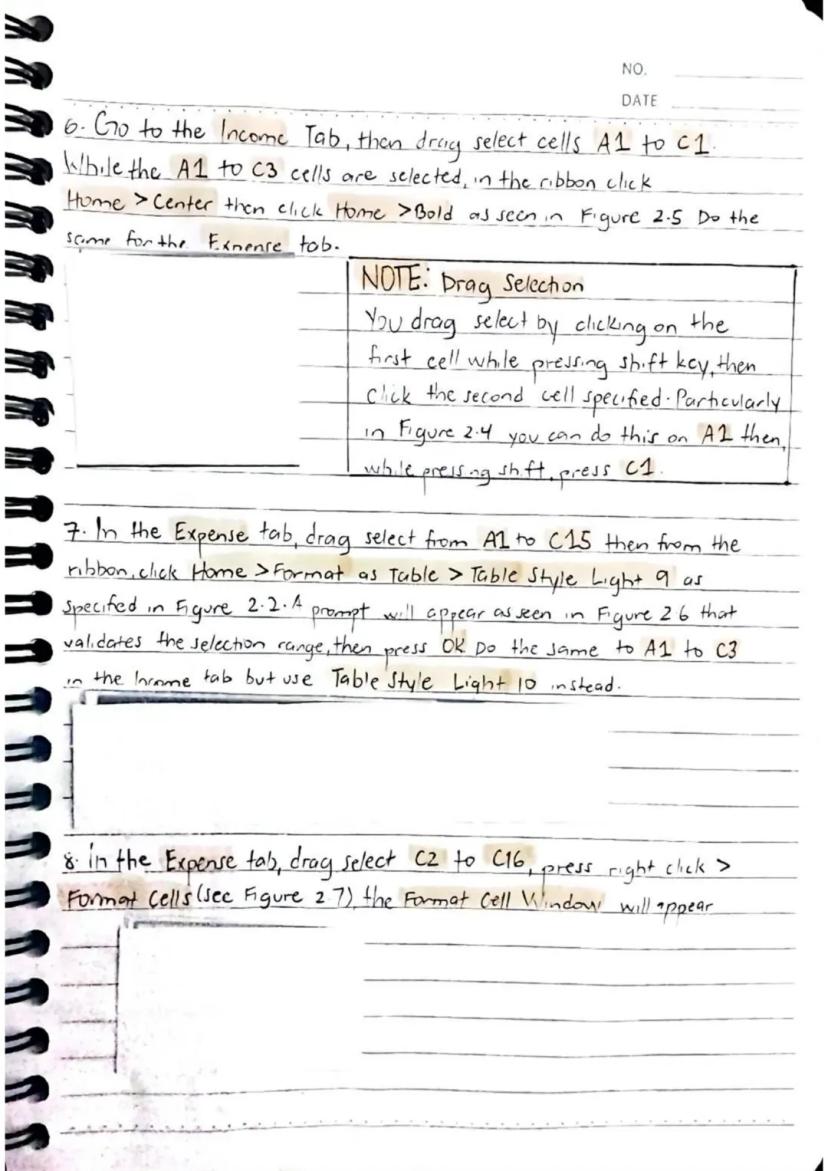 NO.
DATE
6. Go to the Income Tab, then drag select cells A1 to C1.
While the A1 to C3 cells are selected, in the ribbon click
Home > Center then click Home > Bold as seen in Figure 2.5 Do the
same for the Expense tab.
NOTE: Drag Selection
You drag select by clicking on the
first cell while pressing shift key, then
click the second cell specified. Particularly
in Figure 2.4 you can do this on A1 then,
while pressing shift, press C1.
7. In the Expense tab, drag select from A1 to C15 then from the
ribbon, click Home > Format as Table > Table Style Light 9 as
specified in Figure 2.2. A prompt will appear as seen in Figure 2.6 that
validates the selection range, then press OK Do the same to A1 to C3
in the Income tab but use Table Style Light 10 instead.
8. In the Expense tab, drag select C2 to C16, press right click >
Format Cells (see Figure 2.7), the Format Cell Window will appear